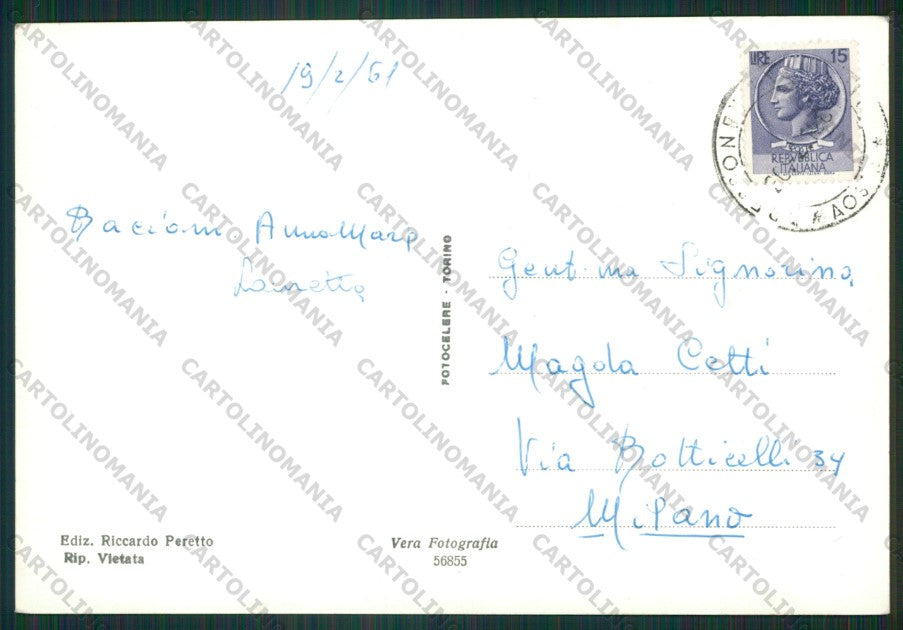 19/2/61
LIRE 15
REPVBBLICA
ITALIANA
AOSTA
Bacioni AnnaMaria
Lauretta
FOTOCELERE - TORINO
Gent.ma Signorina
Magda Cetti
Via Botticelli 34
Milano
Ediz. Riccardo Peretto
Rip. Vietata
Vera Fotografia
56855
CARTOLINOMANIA